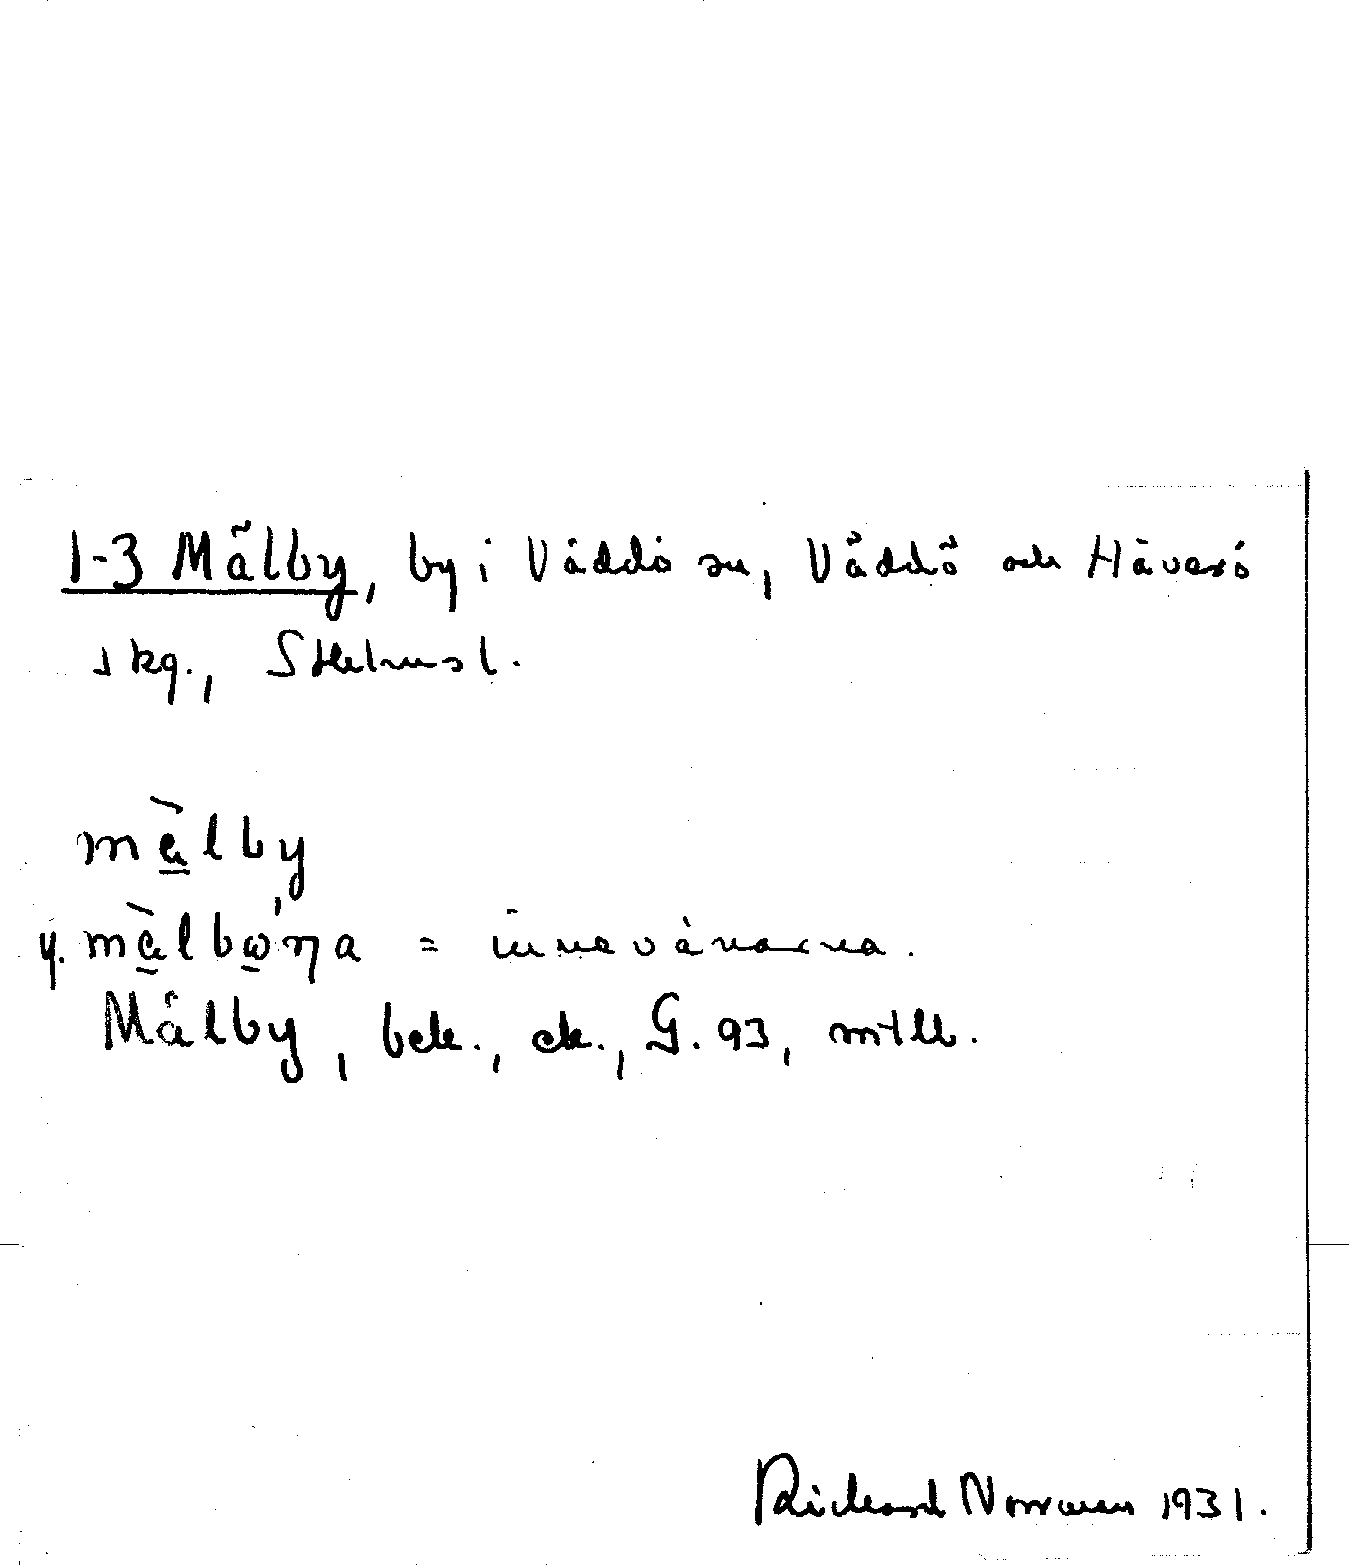 1-3 Mälby, by i Väddö sn, Väddö och Häverö
skg., Sthlmsl.
mä̀lby
y. mä̀lbωṇa = innevånarna.
Mälby, bek., ek., G. 93, mtlb.
Richard Norrman 1931.